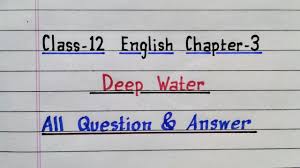 Class-12 English Chapter-3
Deep Water
All Question & Answer